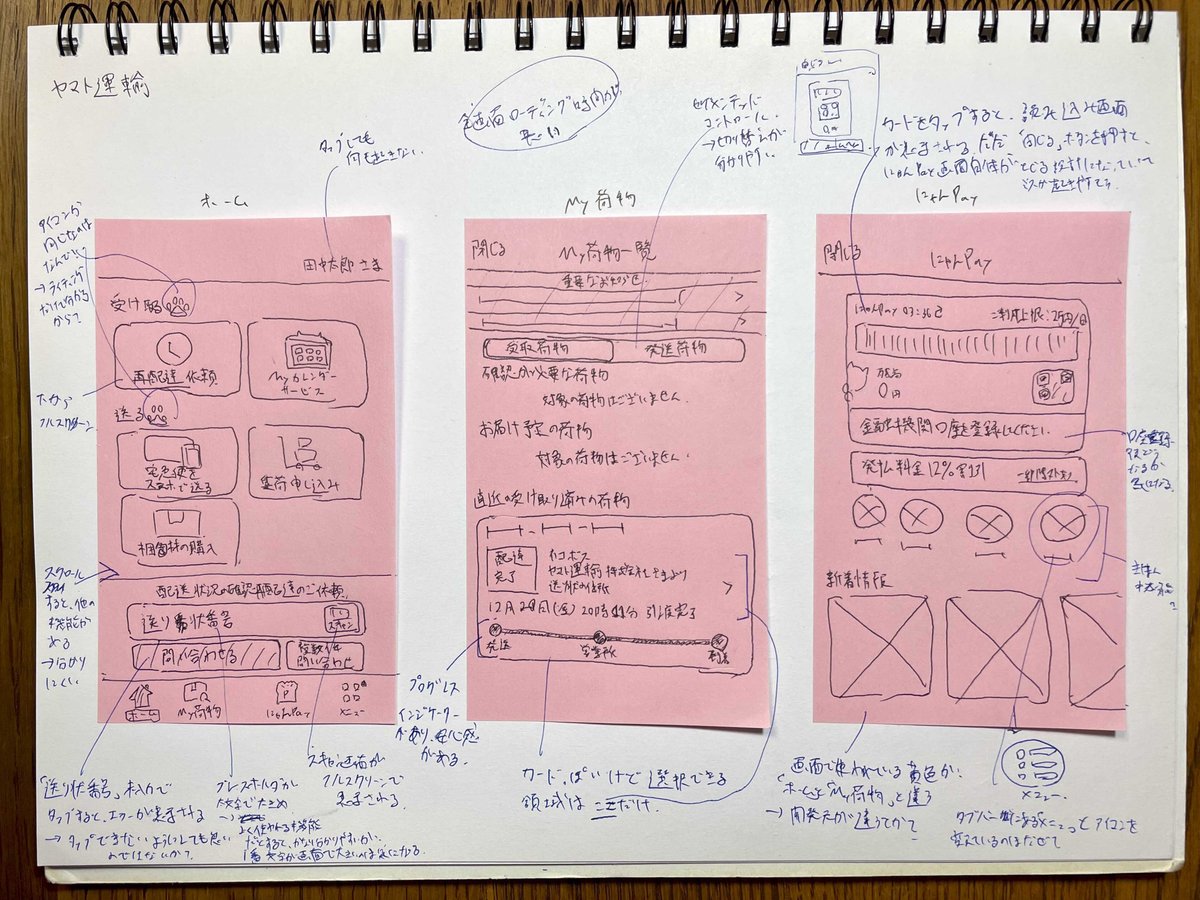 ヤマト運輸
全画面ローディング時間が
長い
タップしても
何も起きない
セグメンテッド
コントロール
→切り替えが
分かりやすい
カードをタップすると、読み込み画面
が表示される。ただ「閉じる」ボタンを押すと、
にゃんPay画面自体がとじる設計になっていて
ミスが起きやすそう
アイコンが
同じなのは
なんで?
→ライティング
だけで分かる
からで?
下から
フルスクリーン
スクロール
すると、他の
機能が
ある
→分かり
にくい
ホーム
田中太郎 さま
受け取る
再配達依頼
Myカレンダー
サービス
送る
宅急便を
スマホで送る
集荷申し込み
梱包材の購入
配送状況の確認・再配達のご依頼
送り状番号
スキャン
問い合わせる
複数件
問い合わせ
ホーム
My荷物
にゃんPay
メニュー
My荷物
閉じる
My荷物一覧
重要なお知らせ
受取荷物
発送荷物
確認が必要な荷物
対象の荷物はございません。
お届け予定の荷物
対象の荷物はございません。
直近の受け取り済みの荷物
配達
完了
ネコポス
ヤマト運輸株式会社さまより
12月20日(金)
引渡完了
発送
営業所
到着
にゃんPay
閉じる
にゃんPay
にゃんPay
ご利用上限:2万円/日
残高
0円
金融機関口座を登録してください
発払料金12%割引
一部対象外
新着情報
口座登録
後どう
なるか
気になる
主な
機能?
「送り状番号」未入力で
タップすると、エラーが表示される
→タップできないようにしても良い
のではないか?
プレースホルダが
太字で大きめ
よく使われる機能
だとすると、かなり分かりやすいが、
1番文字が画面で大きいのは気になる
スキャン画面が
フルスクリーンで
表示される
プログレス
インジケーター
があり、安心感
がある。
カードっぽいけど選択できる
領域はここだけ。
画面で使われている黄色が、
「ホーム」と「My荷物」と違う
→開発元が違うとかで?
メニュー
タブバーにあるメニューとアイコンを
変えているのはなぜ?